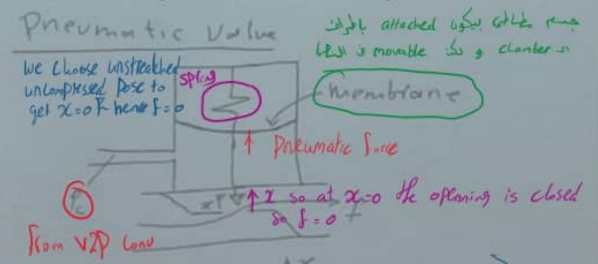 Pneumatic Valve
جسم مطاطي بيكون attached بأطراف
ال chamber و
movable
we choose unstretched
uncompressed pose to
get x=0 & hence f=0
spring
membrane
↑ Pneumatic force
↑ x so at x=0 the openning is closed
so f=0
Pc
from V2P conv